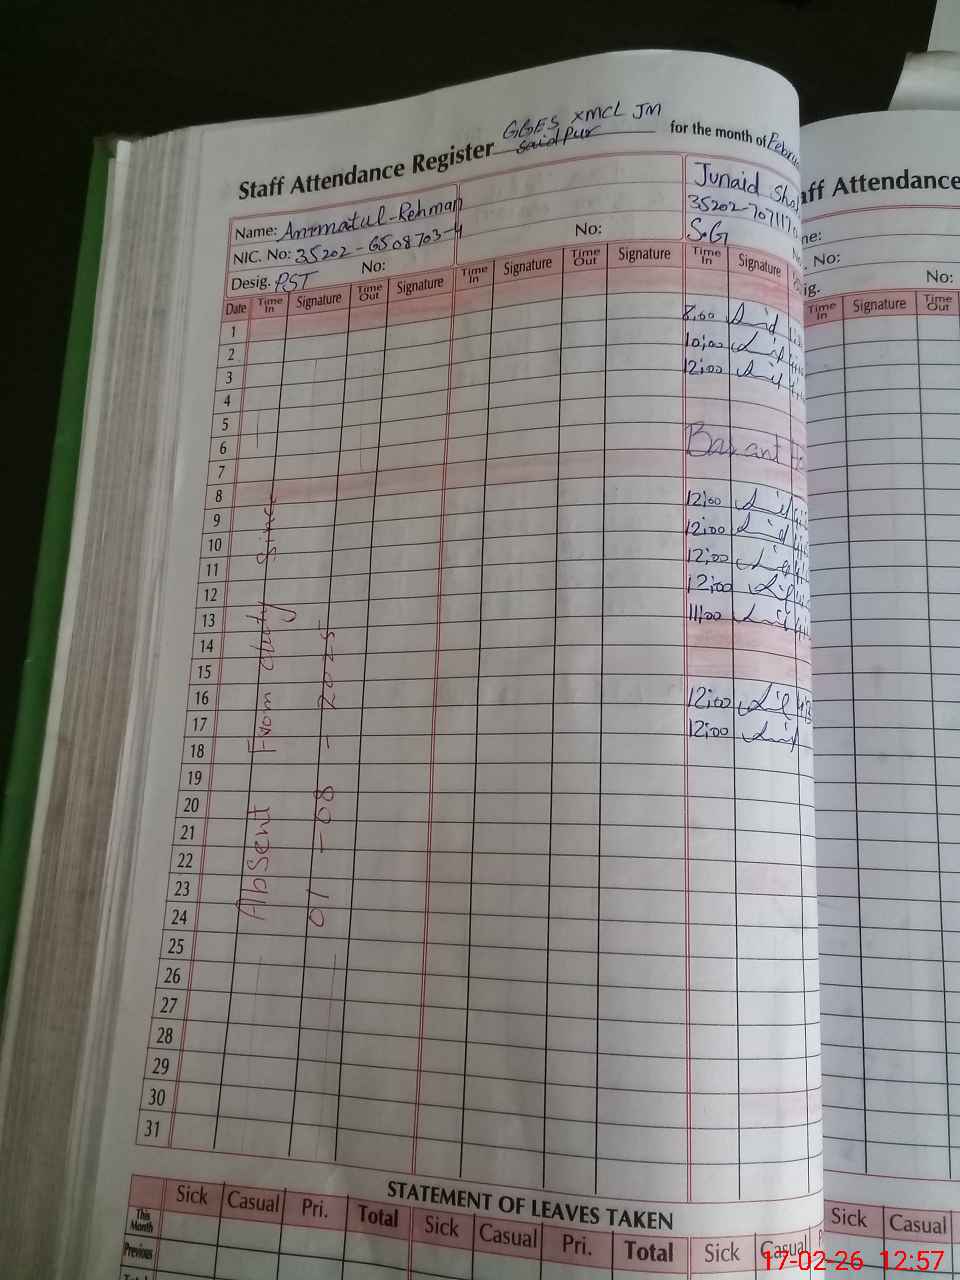 GGES xMCL JM
Staff Attendance Register Saidpur for the month of Februa
Name: Ammatul-Rehman
NIC. No: 35202-6508703-4
Desig. PST No:
No:
Junaid Sha
35202-707117
S.G
Date Time In Signature Time Out Signature Time In Signature Time Out Signature Time In Signature
1
2 8,00
3 10,00
4 12:00
5
6
7 Basant
8
9 12,00
10 12,00
11 12,00
12 12,00
13 11,00
14
15
16 12,00
17 12,00
18
19
20
21
22
23
24
25
26
27
28
29
30
31
Absent From duty Since
01-08-2025
STATEMENT OF LEAVES TAKEN
Sick Casual Pri. Total Sick Casual Pri. Total Sick Casual
This Month
Previous
aff Attendance
ne:
. No:
ig. No:
Time In Signature Time Out
Sick Casual
17-02-26 12:57